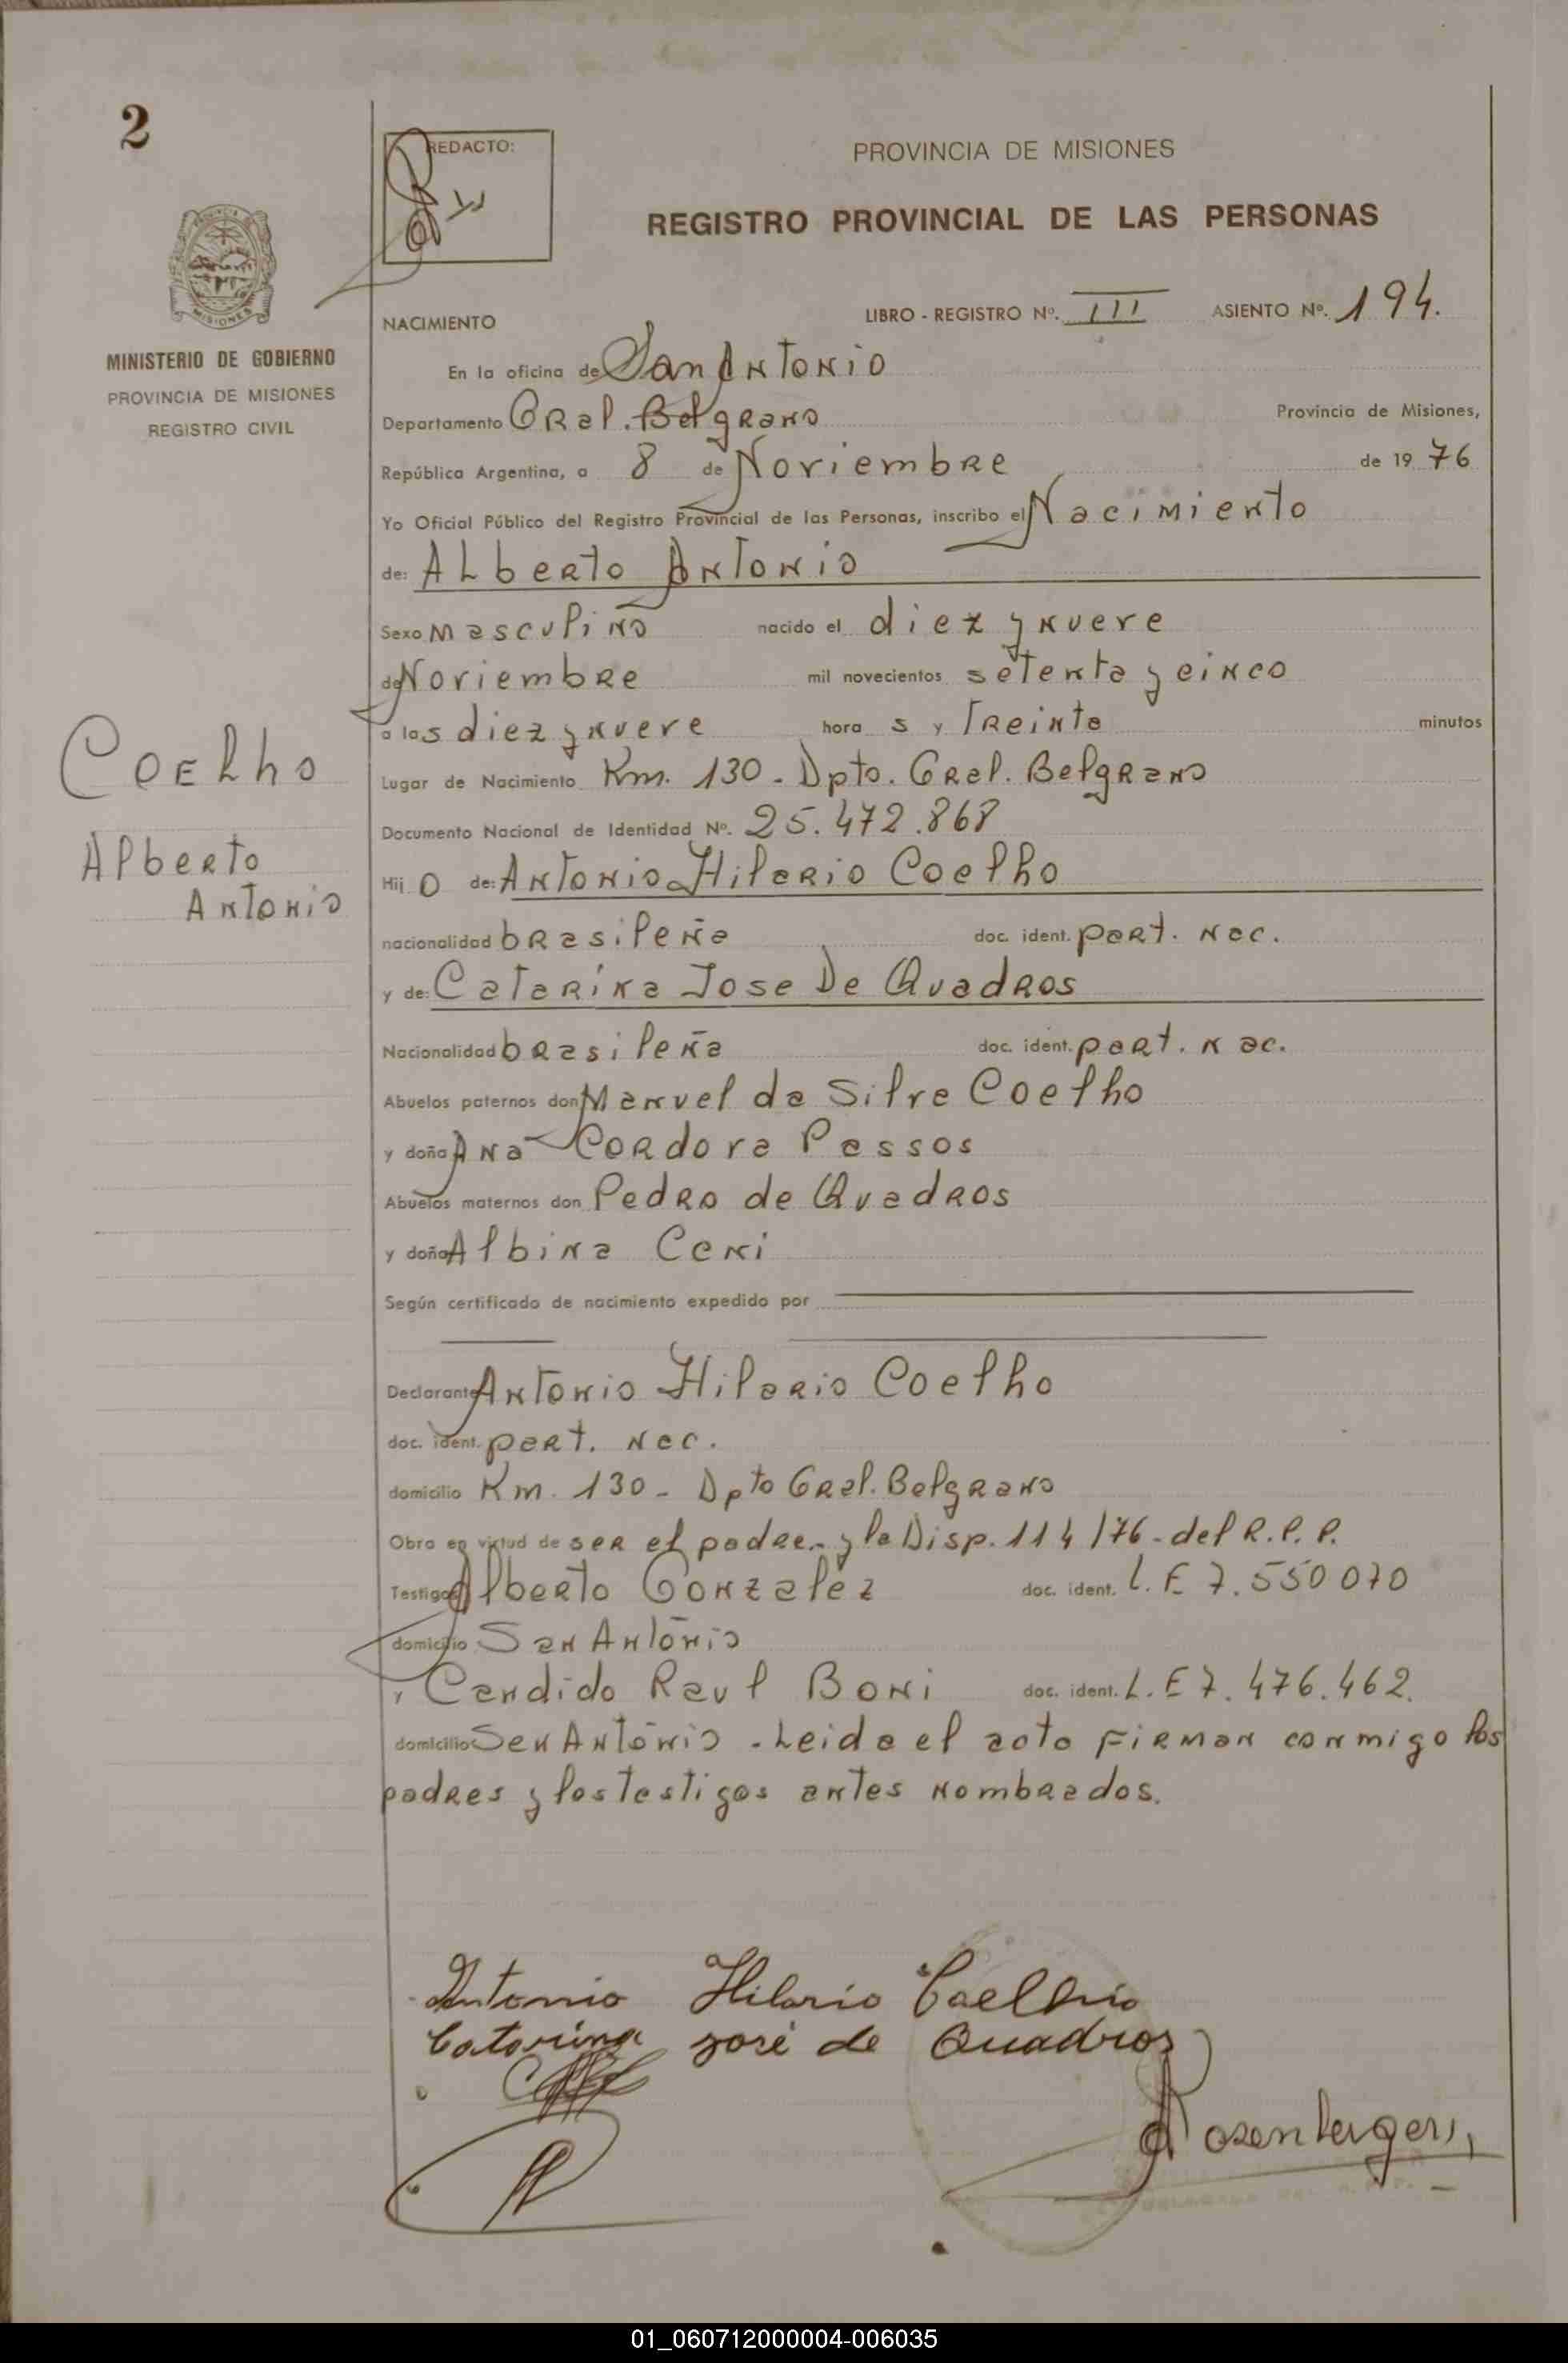 2
REDACTO:
PROVINCIA DE MISIONES
REGISTRO PROVINCIAL DE LAS PERSONAS
MISIONES
MINISTERIO DE GOBIERNO
PROVINCIA DE MISIONES
REGISTRO CIVIL
NACIMIENTO LIBRO - REGISTRO Nº. III ASIENTO Nº. 194.
En la oficina de San Antonio
Departamento Gral. Belgrano Provincia de Misiones,
República Argentina, a 8 de Noviembre de 1976
Yo Oficial Público del Registro Provincial de las Personas, inscribo el Nacimiento
de: Alberto Antonio
Sexo masculino nacido el diez y nueve
de Noviembre mil novecientos setenta y cinco
a las diez y nueve hora s y Treinta minutos
Coelho
Alberto
Antonio
Lugar de Nacimiento Km. 130 - Dpto. Gral. Belgrano
Documento Nacional de Identidad Nº. 25.472.868
Hij o de: Antonio Hilario Coelho
nacionalidad brasileña doc. ident. part. Nac.
y de: Catarina Jose De Quadros
Nacionalidad brasileña doc. ident. part. nac.
Abuelos paternos don Manuel da Silva Coelho
y doña Ana Cordova Passos
Abuelos maternos don Pedro de Quadros
y doña Albina Ceni
Según certificado de nacimiento expedido por
Declarante Antonio Hilario Coelho
doc. ident. part. Nac.
domicilio Km. 130 - Dpto Gral. Belgrano
Obra en virtud de ser el padre.- y la Disp. 114/76 - del R.P.P.
Testigos Alberto Gonzalez doc. ident. L.E 7.550070
domicilio San Antonio
y Candido Raul Boni doc. ident. L.E 7.476.462.
domicilio San Antonio - Leida el acta firman conmigo los
padres y los testigos antes nombrados.
Antonio Hilario Coelhio
Catarina José de Quadros
01_060712000004-006035